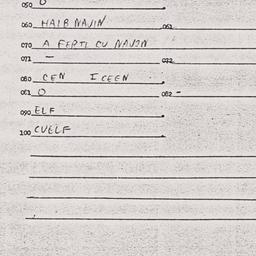 050 0
060 HAIB NAJIN 061
070 A FERTI CU NAJIN
071 — 072
080 CEN ICEEN
081 0 082 -
090 ELF
100 CUELF